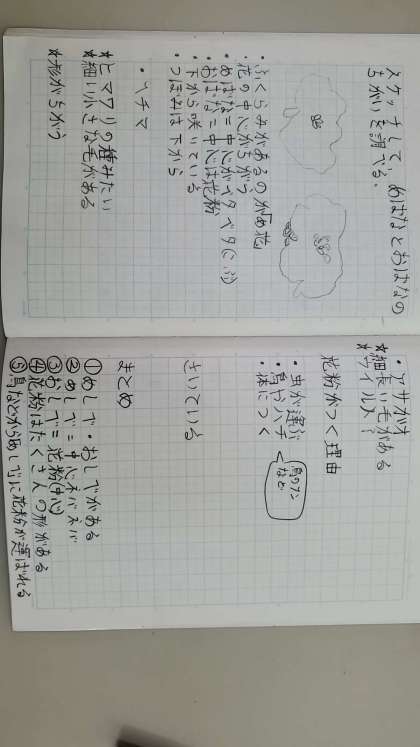 スケッチして、めばなとおばなの
ちがいを調べる.
・ふくらみがあるのが「め花」
・花の中心がちがう
・めばな=中心がベタベタ(じょう)
・おばな=中心は花粉
・下から咲いている
つぼみは下から
・ヘチマ
★ヒマワリの種みたい
★細い小さな毛がある
★形がちがう
・アサガオ
★細長い毛がある
★ウイルス?
花粉がつく理由
・虫が運ぶ
・鳥やハチ
・体につく
鳥のフン
など
さいている
まとめ
①めしべ・おしべがある
②めしべ=中心ネバネバ
③おしべ=花粉(中心)
④花粉はたくさんの形がある
⑤鳥などからめしべに花粉が運ばれる